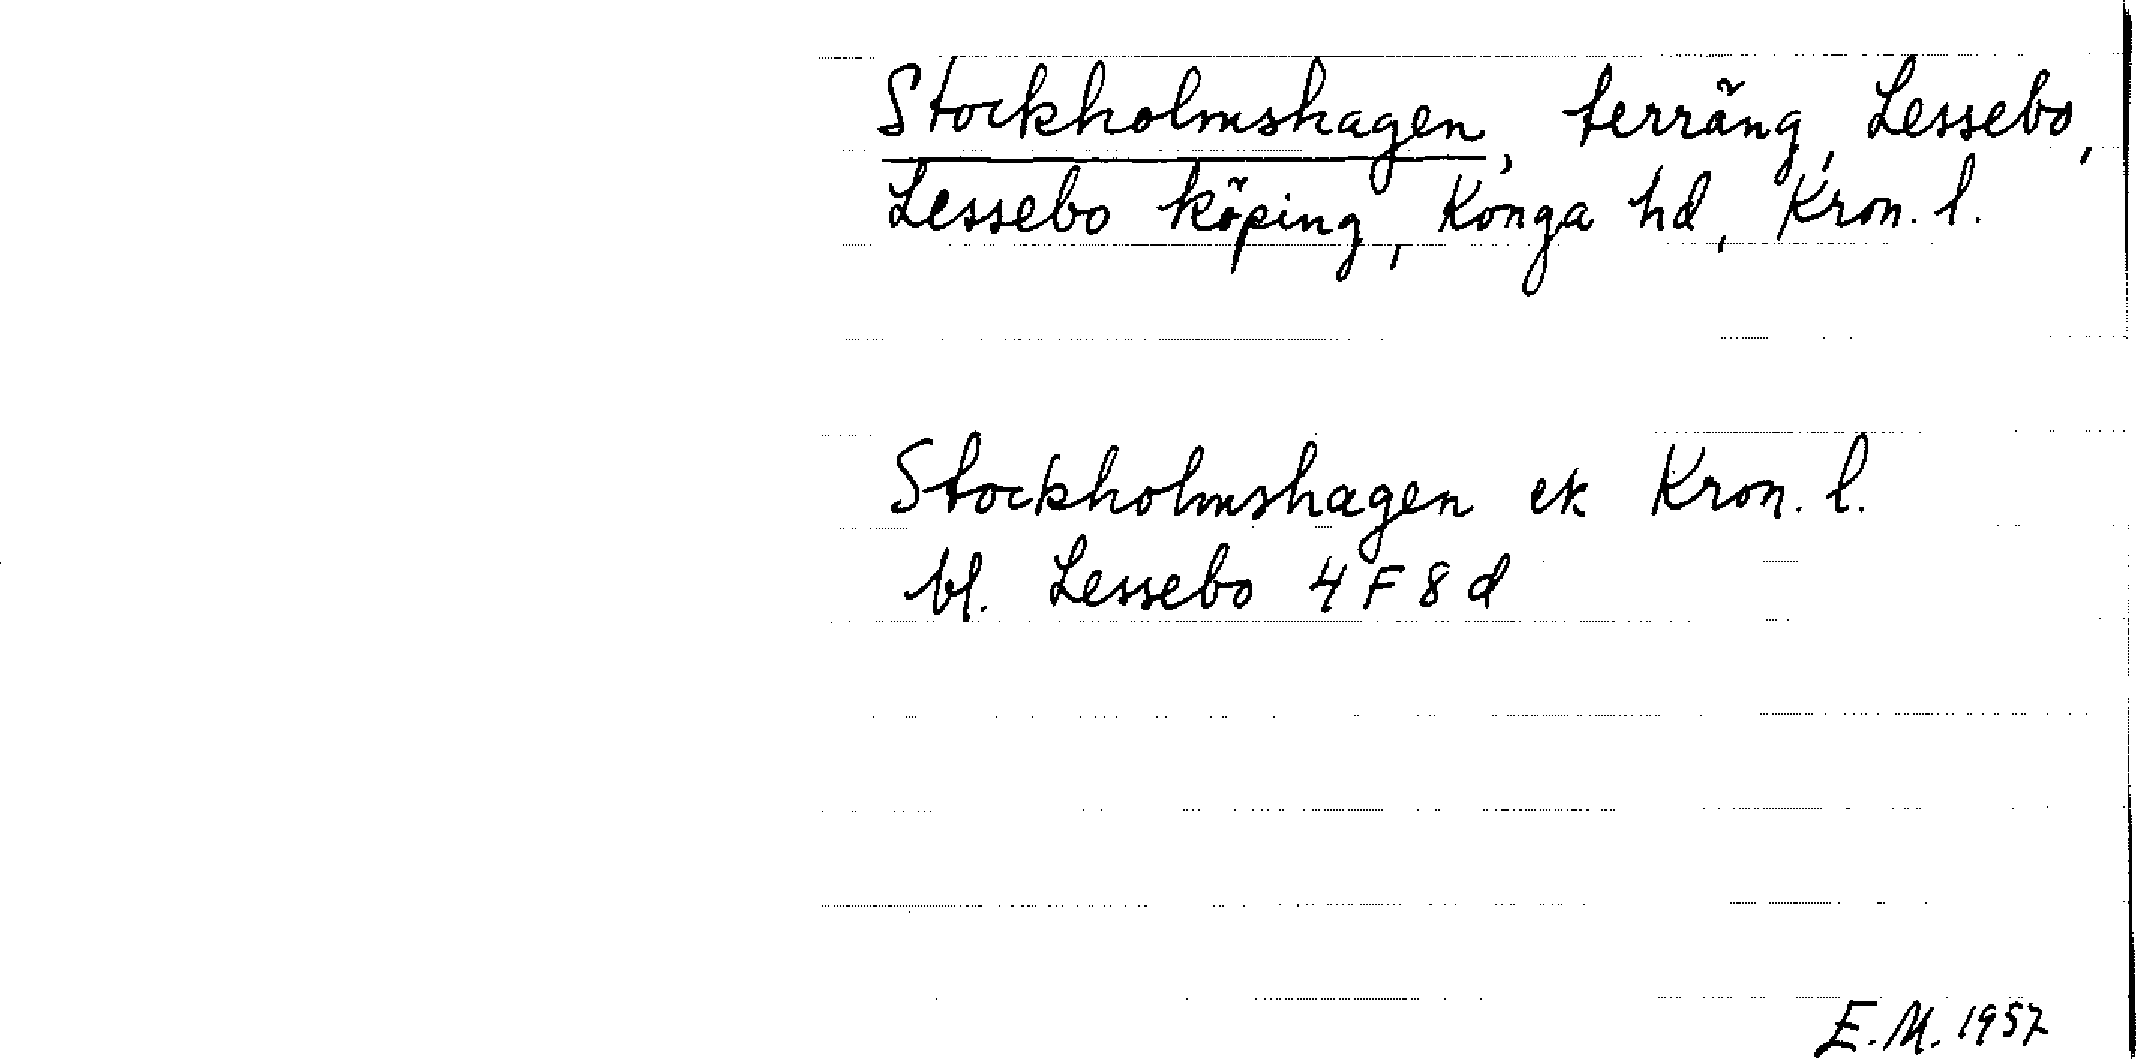 Stockholmshagen, terräng, Lessebo,
Lessebo köping, Konga hd, Kron. l.
Stockholmshagen ek Kron. l.
bl. Lessebo 4 F 8 d
E.M. 1957